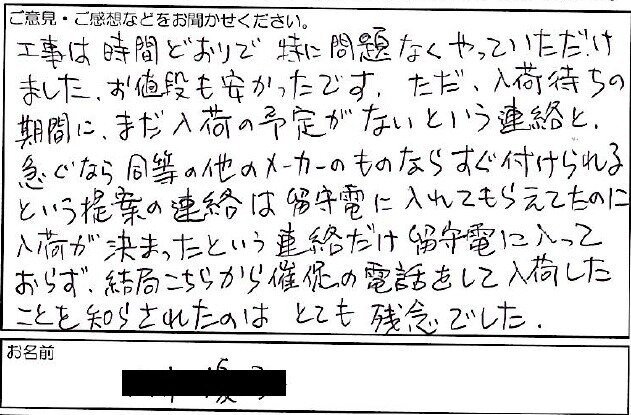 ご意見・ご感想などをお聞かせください。
工事は時間どおりで特に問題なくやっていただけ
ました。お値段も安かったです。ただ、入荷待ちの
期間に、まだ入荷の予定がないという連絡と、
急ぐなら同等の他のメーカーのものならすぐ付けられる
という提案の連絡は留守電に入れてもらえてたのに
入荷が決まったという連絡だけ留守電に入って
おらず、結局こちらから催促の電話をして入荷した
ことを知らされたのはとても残念でした。
お名前